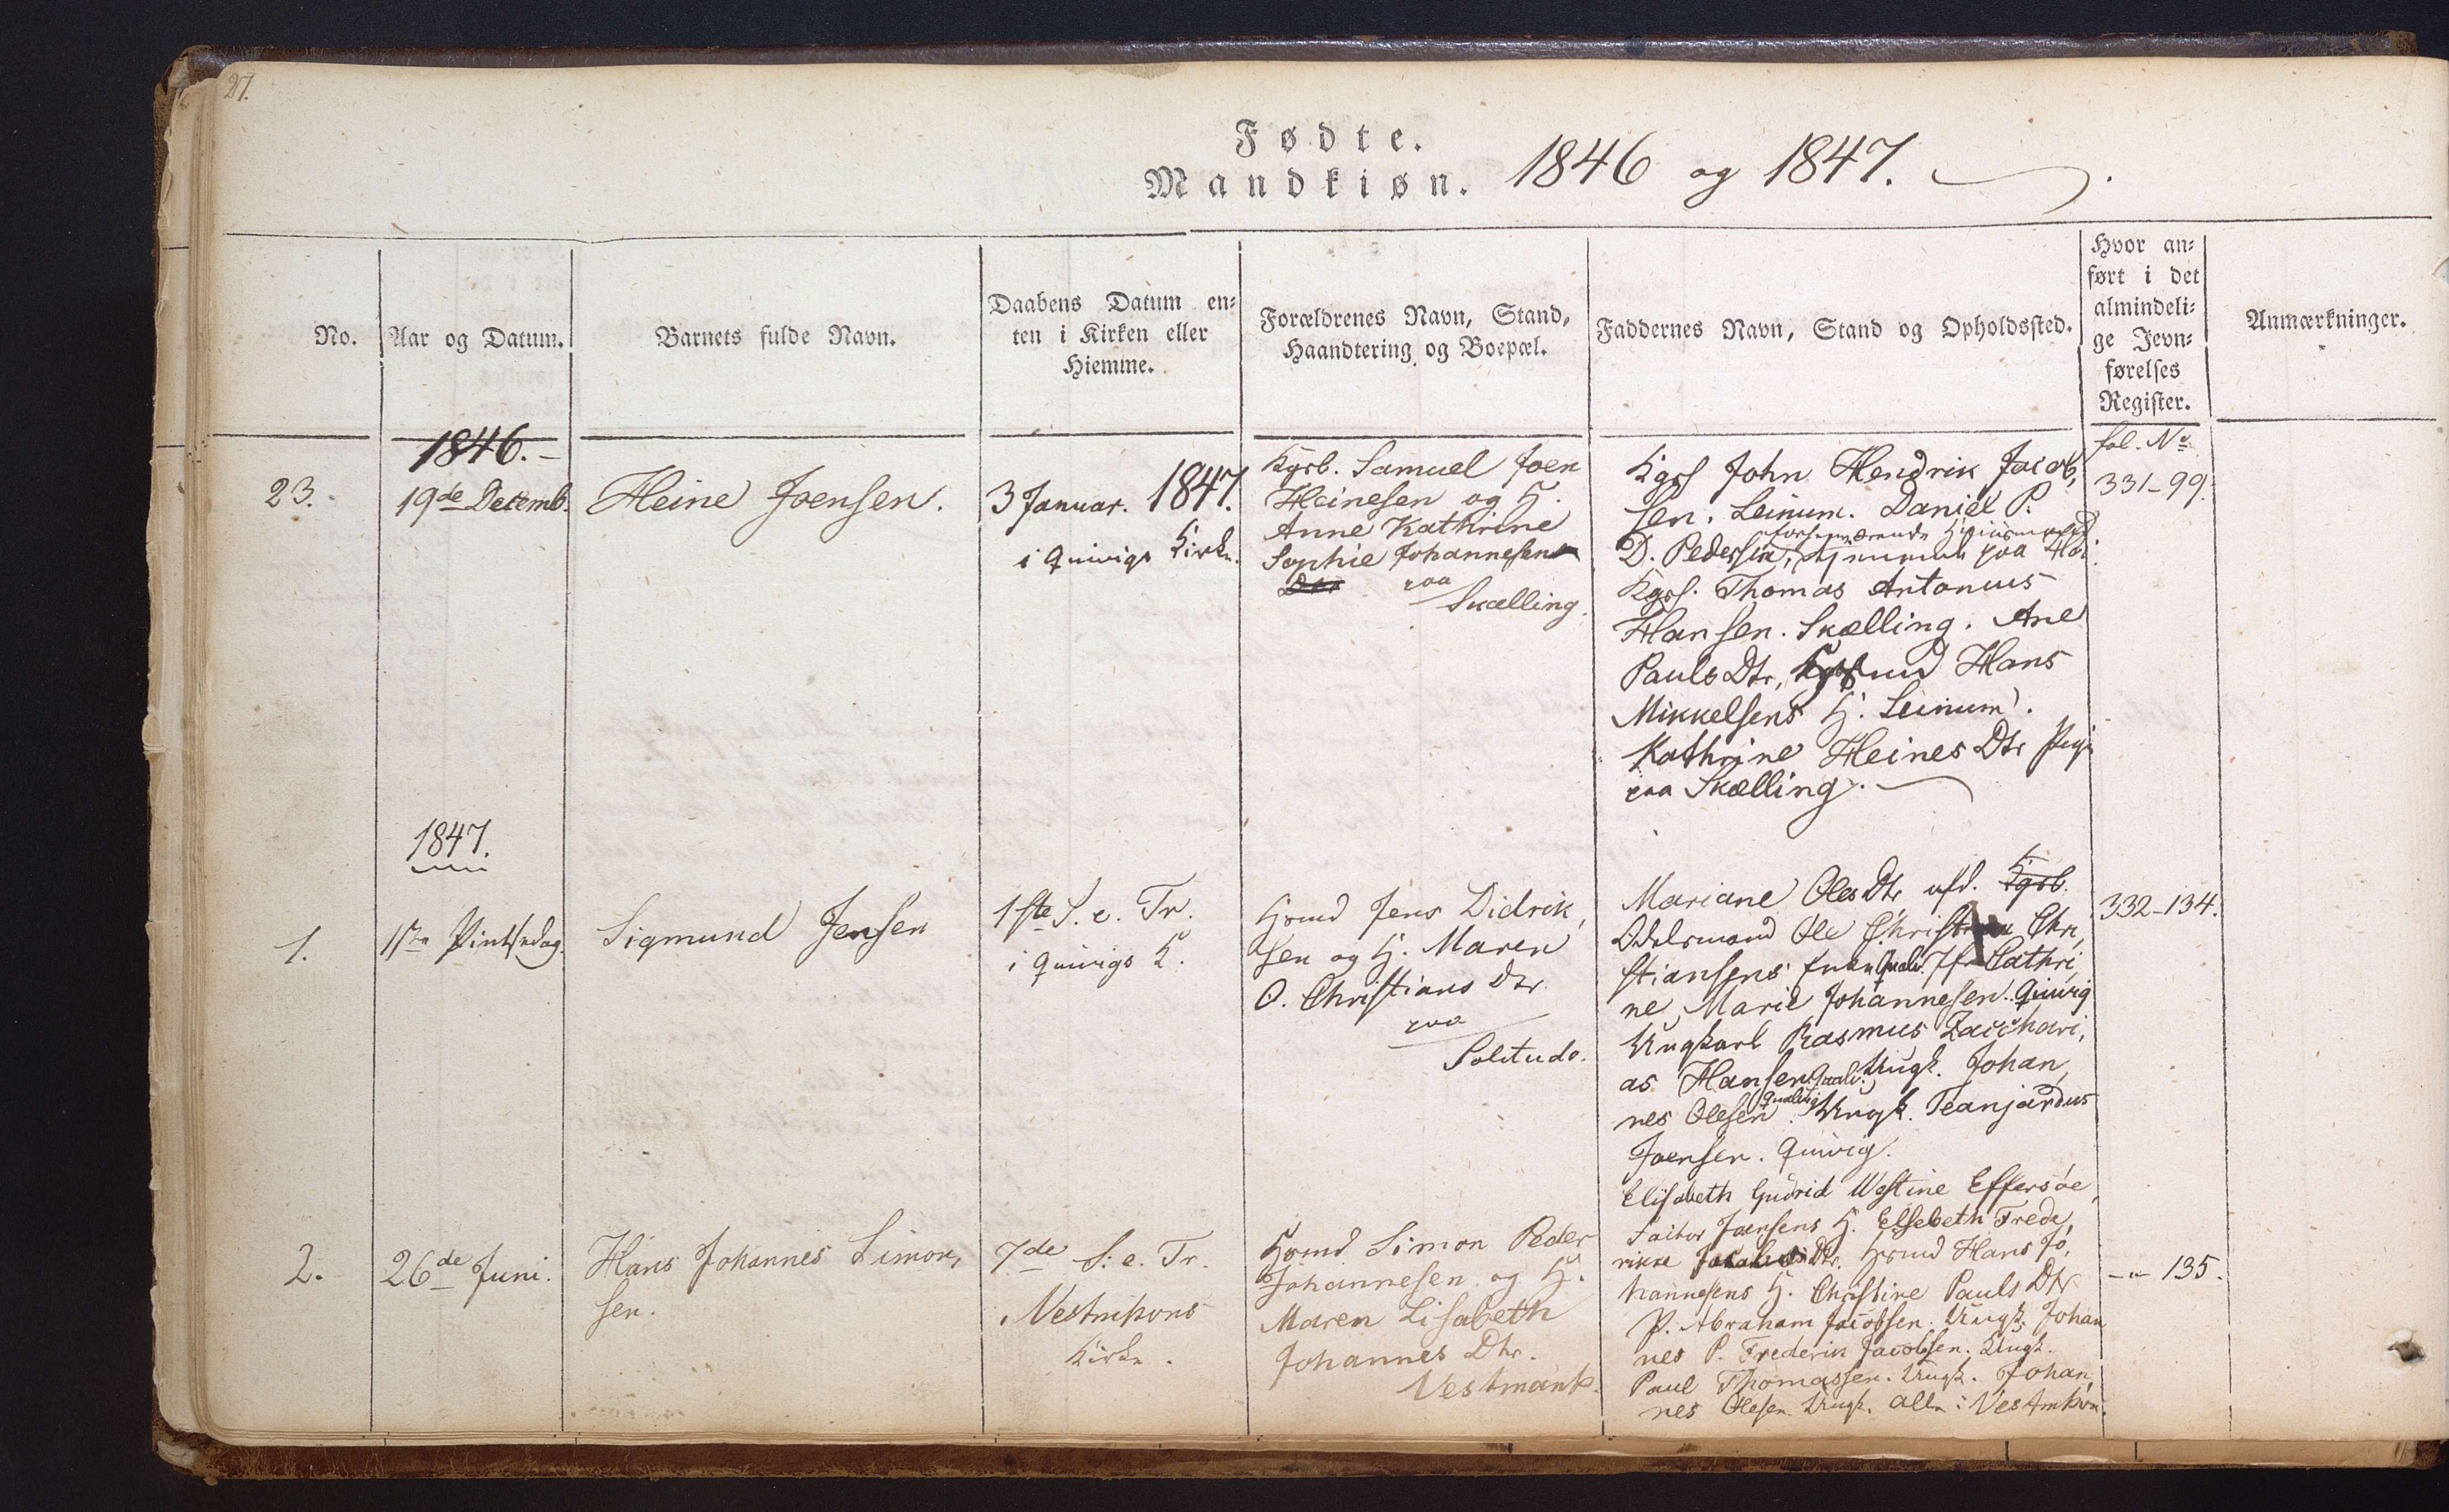 27.
Fødte.
Mandkiøn. 1846 og 1847.
No.
Aar og Datum.
Barnets fulde Navn.
Daabens Datum en-
ten i Kirken eller
Hiemme.
Forældrenes Navn, Stand,
Haandtering og Boepæl.
Faddernes Navn, Stand og Opholdssted.
Hvor an-
ført i det
almindeli-
ge Jevn-
førelses
Register.
Anmærkninger.
1846.
23.
19de Decemb.
Heine Joensen.
3 Januar. 1847.
i Qvivigs Kirke.
Kgsb. Samuel Joen
Heinesen og H.
Anne Kathrine
Sophie Johannesen
paa
Skælling.
Kgsf John Hendrik Jacob,
sen. Leinum. Daniel P.
D. Pedersen, paa
Kgsf. Thomas Antonius
Hansen. Skælling. Ane
Pauls Dtr, Hans
Mikkelsens H. Leinum.
Kathrine Heines Dtr Pige
paa Skælling.
fol. No
331-99.
1847.
1.
1ste Pintsedag.
Sigmund Jensen
1ste S. e. Tr.
i Qvivigs K.
Hsmd Jens Didrik,
sen og H. Maren
O. Christians Dtr
paa
Solitude.
Mariane Oles Dtr, afd. Kgsb.
Odelsmand Ole Christian Chri,
stiansens Enke Jfr Cathri,
ne Marie Johannesen. Qvivig
Ungkarl Rasmus Zacchari,
as Hansen Qvalv. Ungk. Johan,
nes Olesen Qvalvig. Ungk. Teanjardus
Joensen. Qvivig.
332-134.
2.
26de Juni.
Hans Johannes Simon,
sen.
7de S: e. Tr.
i Vestmhons
Kirke.
Hsmd Simon Peder
Johannesen og H.
Maren Lisabeth
Johannes Dtr.
Vestmanh.
Elisabeth Gudrid Westine Effersøe,
Factor Joensens H. Elsebeth Frede,
rikke Dtr. Hsmd Hans Jo,
hannesens H. Christine Pauls Dtr
P. Abraham Jacobsen. Ungk. Johan
nes P. Frederik Jacobsen. Ungk.
Paul Thomassen. Ungk. Johan,
nes Olesen Ungk. alle i Vestmhvn.
-"- 135.